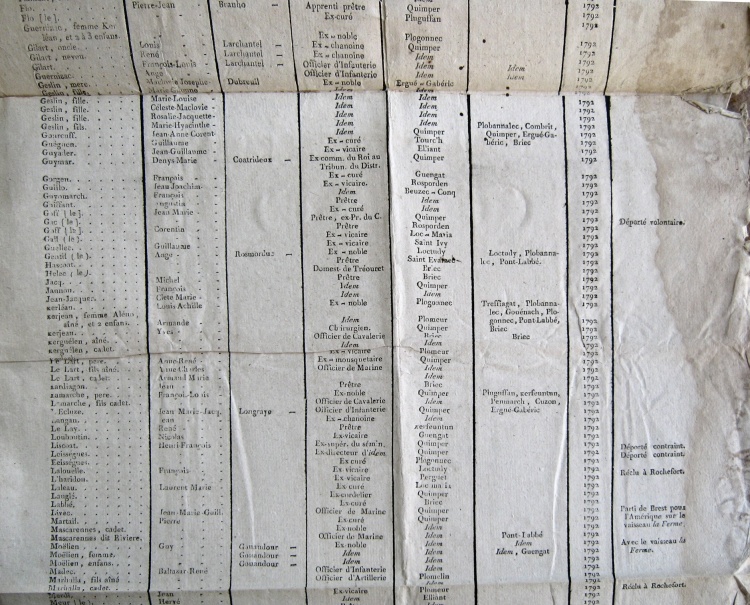 Pierre-Jean Branho Apprenti prêtre Quimper 1792
Flo [le]. Ex-curé Pluguffan 1792
Guernizan, femme Ker
léan, et 2 à 3 enfans. Ex-noble Plogonnec 1792
Gilart, oncle. Louis Larchantel Ex-chanoine Quimper 1792
Gilart, neveu. René Larchantel Ex-chanoine Idem 1792
Gilart. François-Louis Larchantel Officier d'Infanterie Idem Idem 1792
Guernizac. Ange Officier d'Infanterie Idem Idem 1792
Geslin, mere. Josephe Dubreuil Ex-noble Ergué-Gabéric 1792
Geslin, fille. Idem Idem
Geslin, fille. Marie-Louise Idem Idem 1792
Geslin, fille. Céleste-Maclovie Idem Idem 1792
Geslin, fille. Rosalie-Jacquette Idem Idem 1792
Geslin, fils. Marie-Hyacinthe Idem Idem Plobannalec, Combrit, 1792
Gourcuff. Jean-Anne Corent Idem Quimper Quimper, Ergué-Ga- 1792
Guéguen. Guillaume Ex-curé Tourc'h béric, Briec 1792
Guyader. Jean-Guillaume Ex-vicaire Elliant 1792
Guymar. Denys-Marie Coatrideux Ex comm. du Roi au Quimper 1792
Tribun. du Distr.
Gorgen. François Ex-curé Guengat 1792
Guillo. Jean Joachim Ex-vicaire. Rosporden 1792
Guyomarch. François Idem Beuzec-Conq 1792
Gaiffant. Prêtre Idem 1792
Gaff [le]. Jean Marie Ex-curé Idem 1792
Gac [le]. Prêtre, ex-Pr. du C. Quimper 1792 Déporté volontaire.
Gaff [le]. Corentin Prêtre Rosporden 1792
Gall [le]. Ex-vicaire Loc-Maria 1792
Guellec. Guillaume Ex-vicaire Saint Ivy 1792
Gentil [le]. Ange Rosmorduc Ex-noble Loctudy Loctudy, Plobanna- 1792
Prêtre Saint lec, Pont-Labbé. 1792
Helac [le]. Domest de Tréouret Briec 1792
Jacq. Michel Prêtre Briec 1792
Jannou. François Idem Quimper 1792
Jean-Jacques. Clete Marie Idem Idem 1792
Louis Achille Ex-noble Plogonnec Treffiagat, Plobanna- 1792
kerjean, femme Aléno lec, Gouénach, Plo-
aîné, et 2 enfans. Armande Idem Plomeur gonnec, Pont-Labbé, 1792
kerjean. Yves Chirurgien. Quimper Briec 1792
kerguélen, aîné. Officier de Cavalerie Briec Briec 1792
kerguélen, cadet. Idem Idem 1792
Ex-vicaire Plomeur 1792
Le Lart, pere. Anne-René Ex-mousquetaire Quimper 1792
Le Lart, fils aîné. Anne Charles Officier de Marine Idem 1792
Le Lart, cadet. Armand Marie Idem 1792
Jean Prêtre Briec 1792
Lamarche, pere. François-Louis Ex-noble Quimper Pluguffan, kerfeunteun, 1792
Lamarche, fils cadet. Officier de Cavalerie Idem Penmarch, Cuzon, 1792
Jean Marie-Jacq. Longraye Officier d'Infanterie Quimper Ergué-Gabéric 1792
Jean Ex-chanoine Idem 1792
Le Lay. René Prêtre kerfeunteun 1792
Louboutin. Nicolas Ex-vicaire Guengat 1792
Liscoat. Henri François Ex-supér. du sémin. Quimper 1792 Déporté contraint.
Loissègues. Ex-directeur d'idem Quimper 1792 Déporté contraint.
Ex curé Plogonnec 1792
Lalouelle. François Ex vicaire Loctudy 1792 Réclu à Rochefort.
L'haridon. Ex vicaire Perguet 1792
Laleau. Laurent Marie Ex curé Loc maria 1792
Langlé. Ex-cordelier Quimper 1792
Labbé. Ex curé Briec 1792
Livec. Jean-Marie Guill. Officier de Marine Quimper 1792 Parti de Brest pour
Martail. Pierre Ex-curé Quimper 1792 l'Amérique sur le
Mascarennes, cadet. Ex-noble Idem 1792 vaisseau la Ferme.
Mascarennes dit Riviere. Officier de Marine Idem Pont-Labbé 1792
Moëlien. Guy Gouandour Ex-noble Idem Idem 1792 Avec le vaisseau la
Moëlien, femme. Gouandour Idem Idem Idem, Guengat 1792 Ferme.
Moëlien, enfans. Gouandour Idem Idem 1792
Madec. Baltasar-René Officier d'Infanterie Idem 1792
Marhalla, fils aîné Officier d'Artillerie Plomelin 1792
Marhalla, cadet. Idem 1792 Réclu à Rochefort.
Jean Ex-vicaire Plomeur 1792
Hervé Idem Elliant 1792